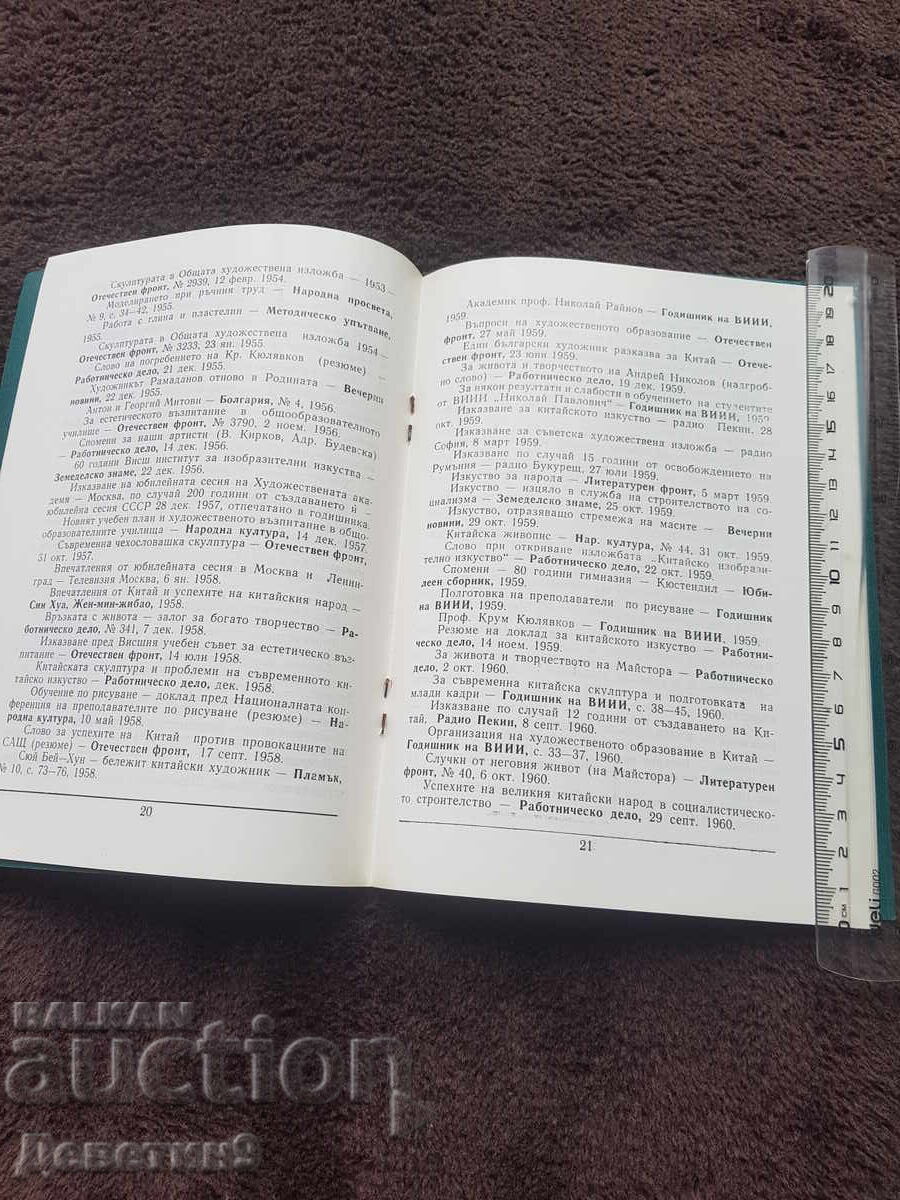 Скулптурата в Общата художествена изложба — 1953 —
Отечествен фронт, № 2939, 12 февр. 1954.
Моделирането при ръчния труд — Народна просвета,
№ 9, с. 34—42, 1955.
Работа с глина и пластелин — Методическо упътване,
1955.
Скулптурата в Общата художествена изложба 1954—
Отечествен фронт, № 3233, 23 ян. 1955.
Слово на погребението на Кр. Кюлявков (резюме) —
Работническо дело, 21 дек. 1955.
Художникът Рамаданов отново в Родината — Вечерни
новини, 22 дек. 1955.
Антон и Георгий Митови — Болгария, № 4, 1956.
За естетическото възпитание в общообразователното
училище — Отечествен фронт, № 3790, 2 ноем. 1956.
Спомени за наши артисти (В. Кирков, Адр. Будевска)
— Работническо дело, 14 дек. 1956.
60 години Висш институт за изобразителни изкуства —
Земеделско знаме, 22 дек. 1956.
Изказване на юбилейната сесия на Художествената ака-
демия — Москва, по случай 200 години от създаването ѝ —
юбилейна сесия СССР 28 дек. 1957, отпечатано в годишника.
Новият учебен план и художественото възпитание в общо-
образователните училища — Народна култура, 14 дек. 1957.
Съвременна чехословашка скулптура — Отечествен фронт,
31 окт. 1957.
Впечатления от юбилейната сесия в Москва и Ленин-
град — Телевизия Москва, 6 ян. 1958.
Впечатления от Китай и успехите на китайския народ —
Син Хуа, Жен-мин-жибао, 1958.
Връзката с живота — залог за богато творчество — Ра-
ботническо дело, № 341, 7 дек. 1958.
Изказване пред Висшия учебен съвет за естетическо въз-
питание — Отечествен фронт, 14 юли 1958.
Китайската скулптура и проблеми на съвременното ки-
тайско изкуство — Работническо дело, дек. 1958.
Обучение по рисуване — доклад пред Националната кон-
ференция на преподавателите по рисуване (резюме) — На-
родна култура, 10 май 1958.
Слово за успехите на Китай против провокациите на
САЩ (резюме) — Отечествен фронт, 17 септ. 1958.
Сюй Бей—Хун — бележит китайски художник — Пламък,
№ 10, с. 73—76, 1958.
20
Академик проф. Николай Райнов — Годишник на ВИИИ,
1959.
Въпроси на художественото образование — Отечествен
фронт, 27 май 1959.
Един български художник разказва за Китай — Отече-
ствен фронт, 23 юни 1959.
За живота и творчеството на Андрей Николов (надгроб-
но слово) — Работническо дело, 19 дек. 1959.
За някои резултати и слабости в обучението на студентите
от ВИИИ „Николай Павлович“ — Годишник на ВИИИ, 1959.
Изказване за китайското изкуство — радио Пекин, 28
окт. 1959.
Изказване за съветска художествена изложба — радио
София, 8 март 1959.
Изказване по случай 15 години от освобождението на
Румъния — радио Букурещ, 27 юли 1959.
Изкуство за народа — Литературен фронт, 5 март 1959.
Изкуство — изцяло в служба на строителството на со-
циализма — Земеделско знаме, 25 окт. 1959.
Изкуство, отразяващо стремежа на масите — Вечерни
новини, 29 окт. 1959.
Китайска живопис — Нар. култура, № 44, 31 окт. 1959.
Слово при откриване изложбата „Китайско изобрази-
телно изкуство“ — Работническо дело, 22 окт. 1959.
Спомени — 80 години гимназия — Кюстендил — Юби-
леен сборник, 1959.
Подготовка на преподаватели по рисуване — Годишник
на ВИИИ, 1959.
Проф. Крум Кюлявков — Годишник на ВИИИ, 1959.
Резюме на доклад за китайското изкуство — Работни-
ческо дело, 14 ноем. 1959.
За живота и творчеството на Майстора — Работническо
дело, 2 окт. 1960.
За съвременна китайска скулптура и подготовката на
млади кадри — Годишник на ВИИИ, с. 38—45, 1960.
Изказване по случай 12 години от създаването на Ки-
тай, Радио Пекин, 8 септ. 1960.
Организация на художественото образование в Китай —
Годишник на ВИИИ, с. 33—37, 1960.
Случки от неговия живот (на Майстора) — Литературен
фронт, № 40, 6 окт. 1960.
Успехите на великия китайски народ в социалистическо-
то строителство — Работническо дело, 29 септ. 1960.
21
BALKAN
auction
Деветин9